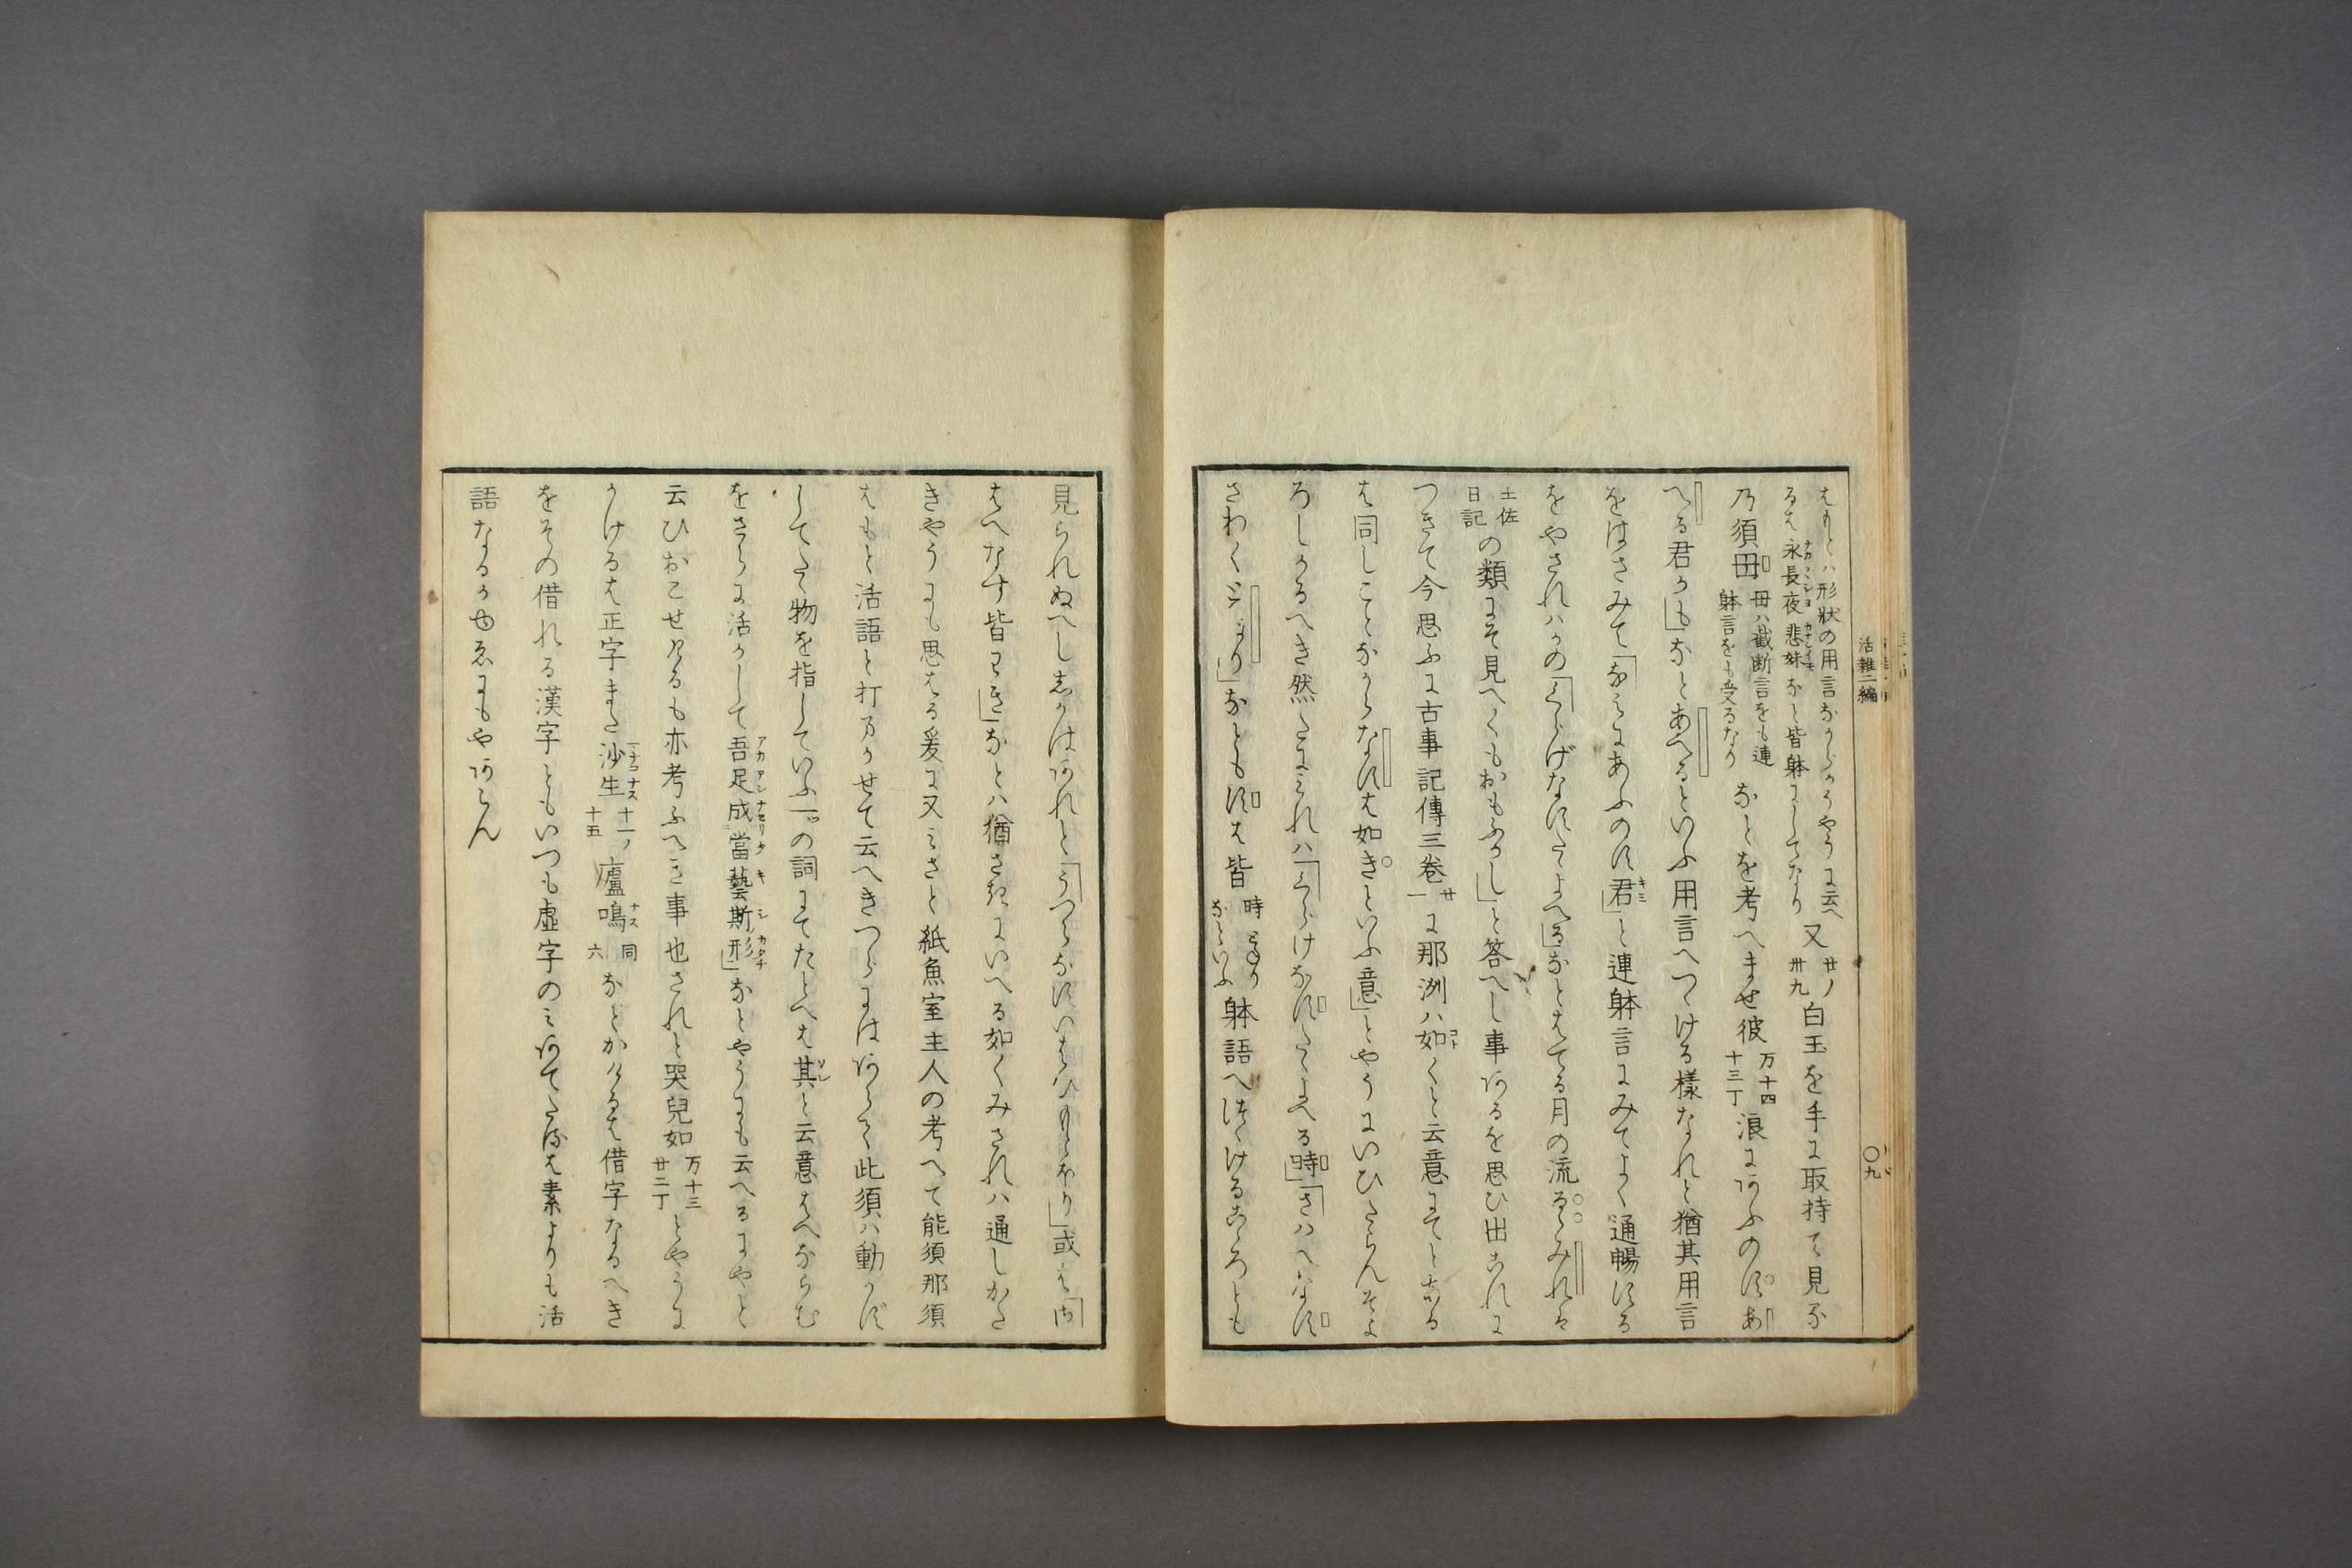 活雑二編
〇九
もとハ形状の用言ながらかうやうに云へ
るは永長夜悲妹など皆躰にしてなり
又廿ノ卅九白玉を手に取持て見な
乃須母母ハ截断言をも連躰言をも受るなりなとを考へませ彼万十四十三丁浪にあふのすあ
へる君かもなとあへるといふ用言へつゝける様なれと猶其用言
をはさみて「なみにあふのす君」と連躰言にみてよく通暢する
をやされハかの「くらげなすたゝよへる」なとはてる月の流るゝみれは
土佐日記の類にそ見へくもおもふかし」と答へし事あるを思ひ出これに
つきて今思ふに古事記傳三巻廿一に那洲ハ如くと云意にそとある
は同しことなからなすは如きといふ意」とやうにいひたらんそよ
ろしかるへき然たにみれハ「くらけなすたゝよへる時」「さハへなす
さわく」なともすは皆時躰語へつゝけるこゝろとも
見られぬへししかはあれと「うつらなすいはひもとほり」或は
はへなす皆わき」なとハ猶さきにいへる如くみされハ通しかた
きやうにも思はる爰に又みさと紙魚室主人の考へて能須那須
はもと活語と打まかせて云へきつらにはあらて此須ハ動かず
してたゝ物を指していふ一ツの詞にてたとへは其と云意はへならむ
をさらに活かして吾足成當藝斯形」なとやうにも云へるにやと
云ひおこせけるも亦考ふへき事也されと哭兒如万十三廿二丁とやうに
かけるは正字また沙生十一ノ十五廬鳴同六なとかけるは借字なるへき
をその借れる漢字ともいつも虚字のみあてたるは素よりも活
語なるかゆゑにもやあらん